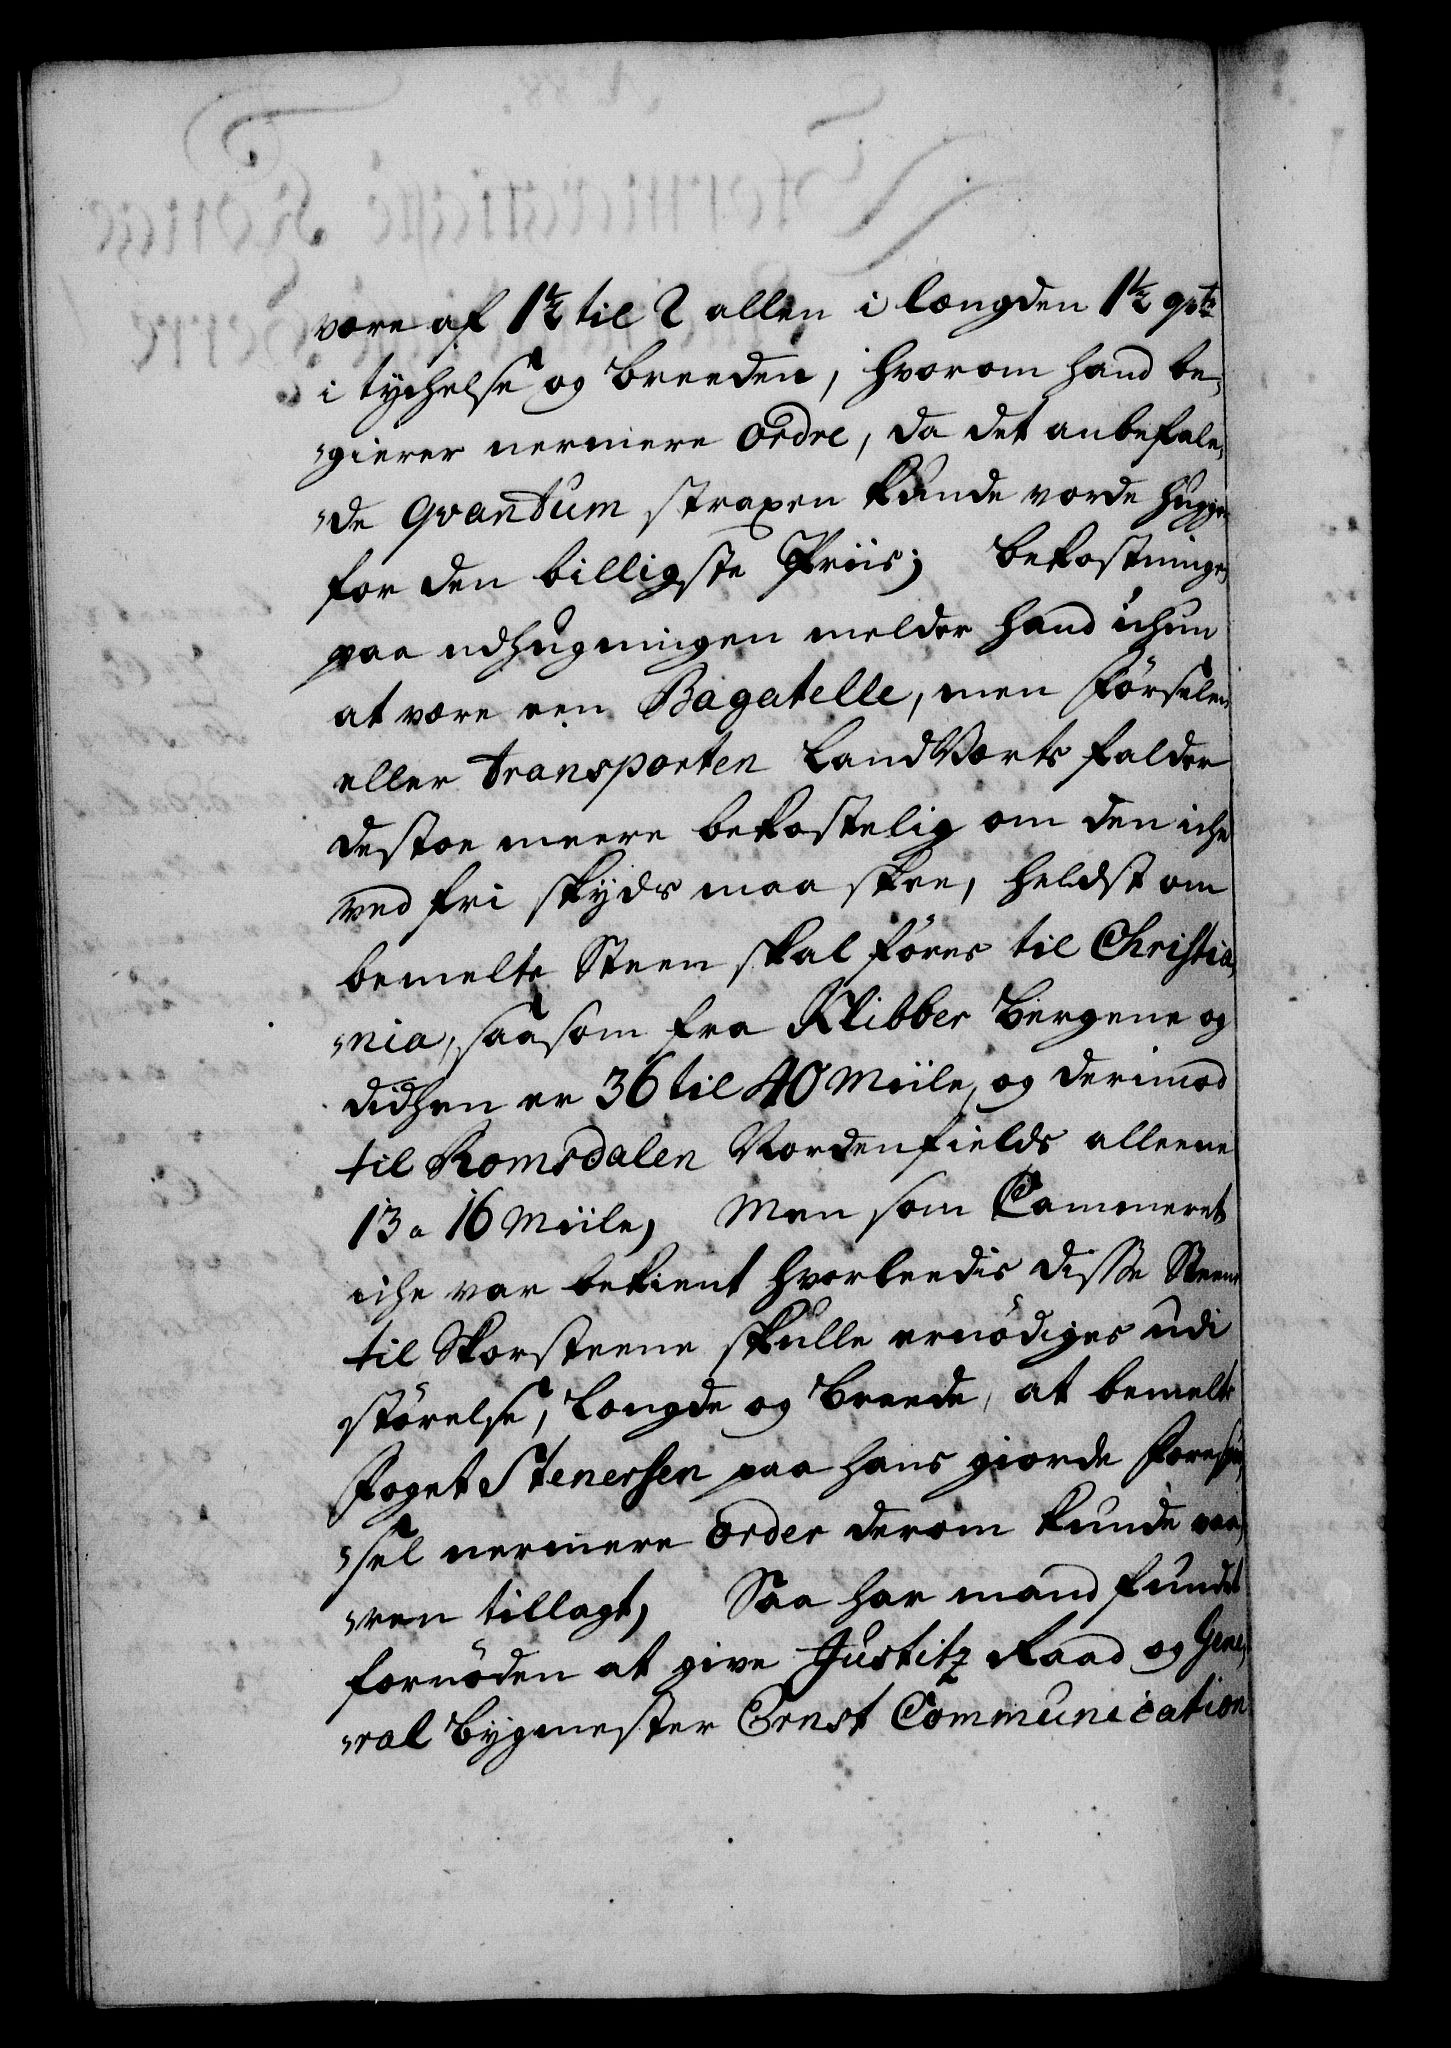 være af 1½ til 2 allen i længden 1½ qvt:
i tychelse og breeden, hvorom hand be-
„gierer nermere Ordre, da det anbefale-
„de Qvantum straxen kunde vorde huggen
for den billigste Priis; bekostningen
paa udhugningen melder hand ichun
at være een Bagatelle, men førselen
eller transporten Landværts falder
destoe meere bekostelig om den iche
ved fri skyds maa skee, heldst om
bemelte Steen skal føres til Christia-
„nia, saasom fra Klibber Bergene og
didhen er 36 til 40 Miile, og derimod
til Romsdalen Nordenfields alleene
13 a 16 Miile, Men som Cammeret
iche var bekient hvorleedis disse Steene
til Skorsteene skulle ernødiges udi
størelse, Længde og Breede, at bemelte
Foget Stenersen paa hans giorde Forespør-
„sel nermere Order derom kunde vaa-
„ren tillagt, Saa har mand fundet
fornøden at give Justitz Raad og Gene-
„ral Bygmester Ernst Communication